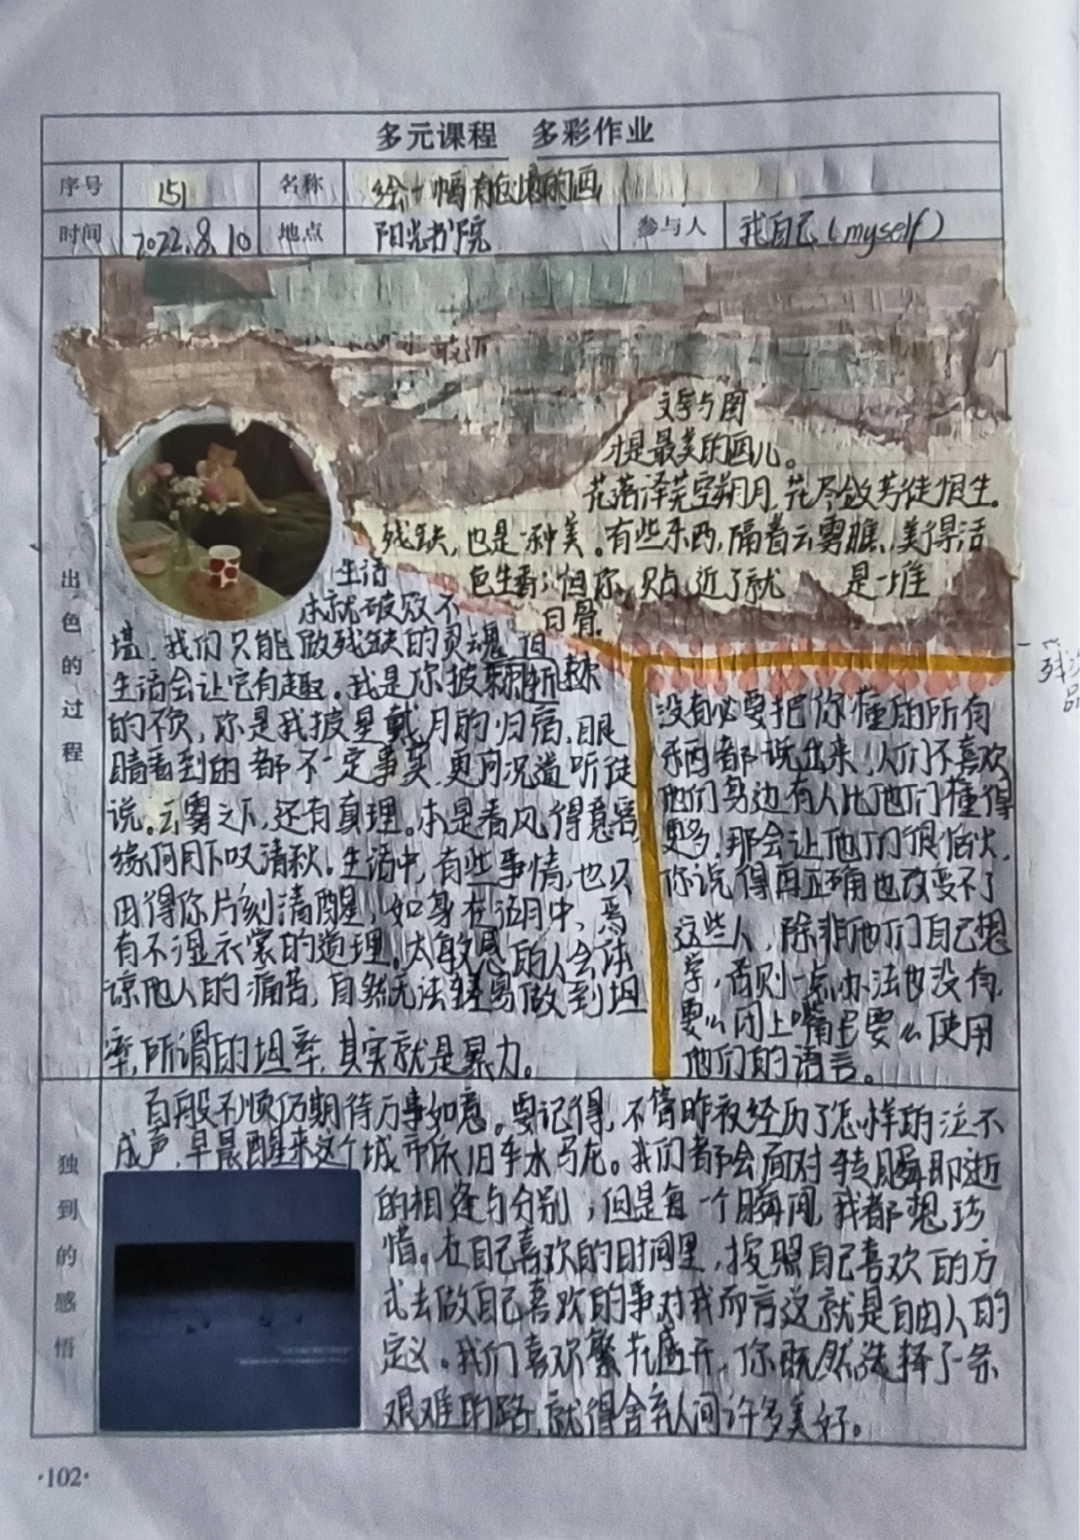 多元课程 多彩作业
序号 151 名称 绘一幅有的画
时间 2022.8.10 地点 阳光书院 参与人 我自己(myself)
出色的过程
文字与图
才是最美的画儿。
花落泽芜空朔月,花尽敛芳徒恨生。
残缺,也是一种美。有些东西,隔着云雾瞧,美得活
色生香;但你一贴近了就是一堆
白骨。
生活
本就破败不
堪,我们只能做残缺的灵魂,但
生活会让它有趣。我是你披荆斩棘
的不顾,你是我披星戴月的归宿,眼
睛看到的都不一定事实,更何况道听徒
说。云雾之下,还有真理。本是春风得意客
缘何月下叹清秋。生活中,有些事情,也只
因得你片刻清醒,如身在泪中,焉
有不湿衣裳的道理。太敏感的人会体
谅他人的痛苦,自然无法轻易做到坦
率,所谓的坦率,其实就是暴力。
没有必要把你懂的所有
东西都说出来,人们不喜欢
他们身边有人比他们懂得
更多,那会让他们很恼火。
你说得再正确也改变不了
这些人,除非他们自己想
学,否则一点办法也没有,
要么闭上嘴巴要么使用
他们的语言。
残次
品
独到的感悟
百般不顺仍期待万事如意。要记得,不管昨夜经历了怎样的泣不
成声,早晨醒来这个城市依旧车水马龙。我们都会面对转瞬即逝
的相逢与分别,但是每一个瞬间,我都想珍
惜。在自己喜欢的时间里,按照自己喜欢的方
式去做自己喜欢的事对我而言这就是自由人的
定义。我们喜欢繁花盛开,你既然选择了一条
艰难的路,就得舍弃人间许多美好。
·102·